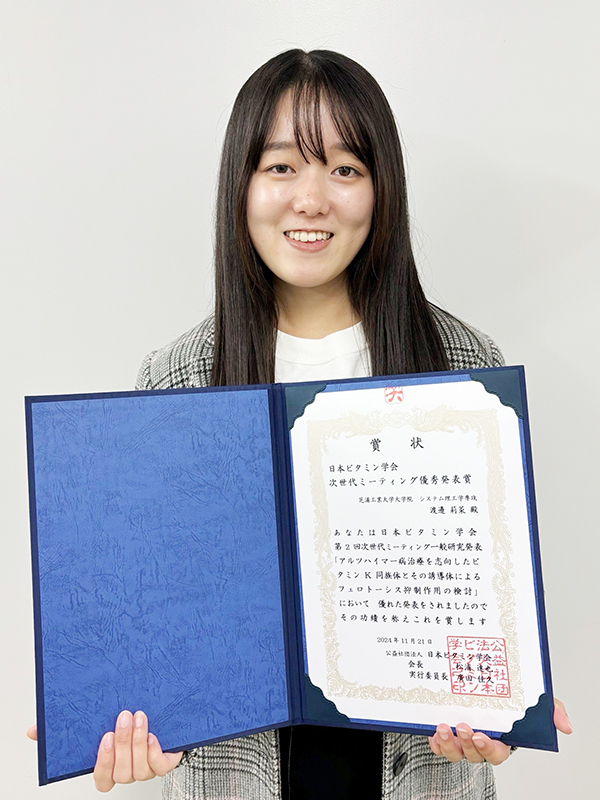 賞状
日本ビタミン学会
次世代ミーティング優秀発表賞
芝浦工業大学大学院 システム理工学専攻
渡邉 莉菜 殿
あなたは日本ビタミン学会
第2回次世代ミーティング一般研究発表
「アルツハイマー病治療を志向したビ
タミンK同族体とその誘導体による
フェロトーシス抑制作用の検討」
において 優れた発表をされましたので
その功績を称えこれを賞します
2024年11月21日
公益社団法人 日本ビタミン学会
会長
実行委員長